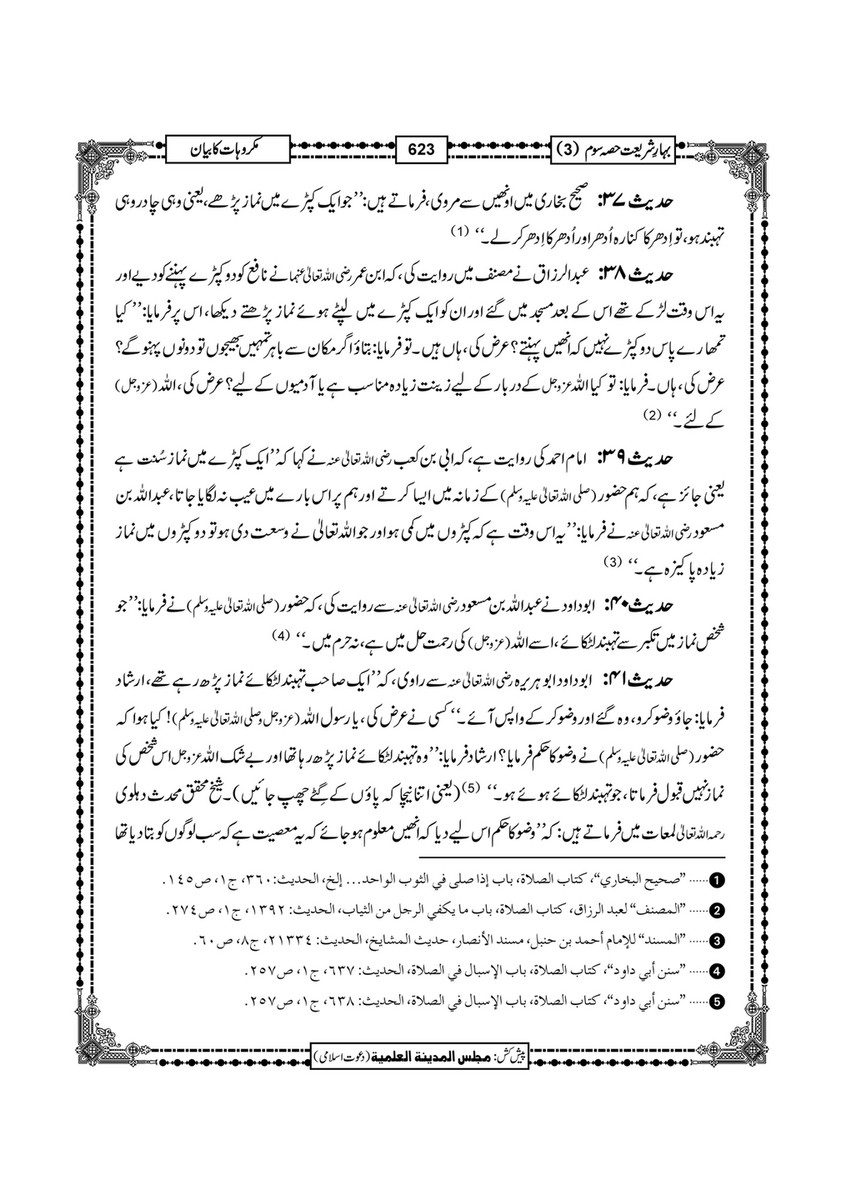 بہارِ شریعت حصہ سوم (3)
623
مکروہات کا بیان
حدیث ۳۷: صحیح بخاری میں اونھیں سے مروی، فرماتے ہیں: ’’جو ایک کپڑے میں نماز پڑھے، یعنی وہی چادر وہی
تہبند ہو، تو اِدھر کا کنارہ اُدھر اور اُدھر کا اِدھر کر لے۔‘‘ (1)
حدیث ۳۸: عبدالرزاق نے مصنف میں روایت کی، کہ ابن عمر رضی اللہ تعالیٰ عنہما نے نافع کو دو کپڑے پہننے کو دیے اور
یہ اس وقت لڑکے تھے اس کے بعد مسجد میں گئے اور ان کو ایک کپڑے میں لپٹے ہوئے نماز پڑھتے دیکھا، اس پر فرمایا: ’’کیا
تمھارے پاس دو کپڑے نہیں کہ انھیں پہنتے؟ عرض کی، ہاں ہیں۔ تو فرمایا: بتاؤ اگر مکان سے باہر تمہیں بھیجوں تو دونوں پہنو گے؟
عرض کی، ہاں۔ فرمایا: تو کیا اللہ عزوجل کے دربار کے لیے زینت زیادہ مناسب ہے یا آدمیوں کے لیے؟ عرض کی، اللہ (عزوجل)
کے لئے۔‘‘ (2)
حدیث ۳۹: امام احمد کی روایت ہے، کہ ابی بن کعب رضی اللہ تعالیٰ عنہ نے کہا کہ ’’ایک کپڑے میں نماز سُنت ہے
یعنی جائز ہے، کہ ہم حضور (صلی اللہ تعالیٰ علیہ وسلم) کے زمانہ میں ایسا کرتے اور ہم پر اس بارے میں عیب نہ لگایا جاتا، عبداللہ بن
مسعود رضی اللہ تعالیٰ عنہ نے فرمایا: ’’یہ اس وقت ہے کہ کپڑوں میں کمی ہو اور جو اللہ تعالیٰ نے وسعت دی ہو تو دو کپڑوں میں نماز
زیادہ پاکیزہ ہے۔‘‘ (3)
حدیث ۴۰: ابوداود نے عبداللہ بن مسعود رضی اللہ تعالیٰ عنہ سے روایت کی، کہ حضور (صلی اللہ تعالیٰ علیہ وسلم) نے فرمایا: ’’جو
شخص نماز میں تکبر سے تہبند لٹکائے، اسے اللہ (عزوجل) کی رحمت حل میں ہے، نہ حرم میں۔‘‘ (4)
حدیث ۴۱: ابوداود ابوہریرہ رضی اللہ تعالیٰ عنہ سے راوی، کہ ’’ایک صاحب تہبند لٹکائے نماز پڑھ رہے تھے، ارشاد
فرمایا: جاؤ وضو کرو، وہ گئے اور وضو کر کے واپس آئے۔‘‘ کسی نے عرض کی، یا رسول اللہ (عزوجل وصلی اللہ تعالیٰ علیہ وسلم)! کیا ہوا کہ
حضور (صلی اللہ تعالیٰ علیہ وسلم) نے وضو کا حکم فرمایا؟ ارشاد فرمایا: ’’وہ تہبند لٹکائے نماز پڑھ رہا تھا اور بے شک اللہ عزوجل اس شخص کی
نماز نہیں قبول فرماتا، جو تہبند لٹکائے ہوئے ہو۔‘‘ (5) (یعنی اتنا نیچا کہ پاؤں کے گٹے چھپ جائیں)۔ شیخ محقق محدث دہلوی
رحمہ اللہ تعالیٰ لمعات میں فرماتے ہیں: کہ ’’وضو کا حکم اس لیے دیا کہ انھیں معلوم ہو جائے کہ یہ معصیت ہے کہ سب لوگوں کو بتا دیا تھا
❶...... ”صحيح البخاري“، كتاب الصلاة، باب إذا صلى في الثوب الواحد... إلخ، الحديث: ٣٦٠، ج١، ص١٤٥.
❷...... ”المصنف“ لعبد الرزاق، كتاب الصلاة، باب ما يكفي الرجل من الثياب، الحديث: ١٣٩٢، ج١، ص٢٧٤.
❸...... ”المسند“ للإمام أحمد بن حنبل، مسند الأنصار، حديث المشايخ، الحديث: ٢١٣٣٤، ج٨، ص٦٠.
❹...... ”سنن أبي داود“، كتاب الصلاة، باب الإسبال في الصلاة، الحديث: ٦٣٧، ج١، ص٢٥٧.
❺...... ”سنن أبي داود“، كتاب الصلاة، باب الإسبال في الصلاة، الحديث: ٦٣٨، ج١، ص٢٥٧.
پیش کش: مجلس المدینة العلمیة (دعوت اسلامی)